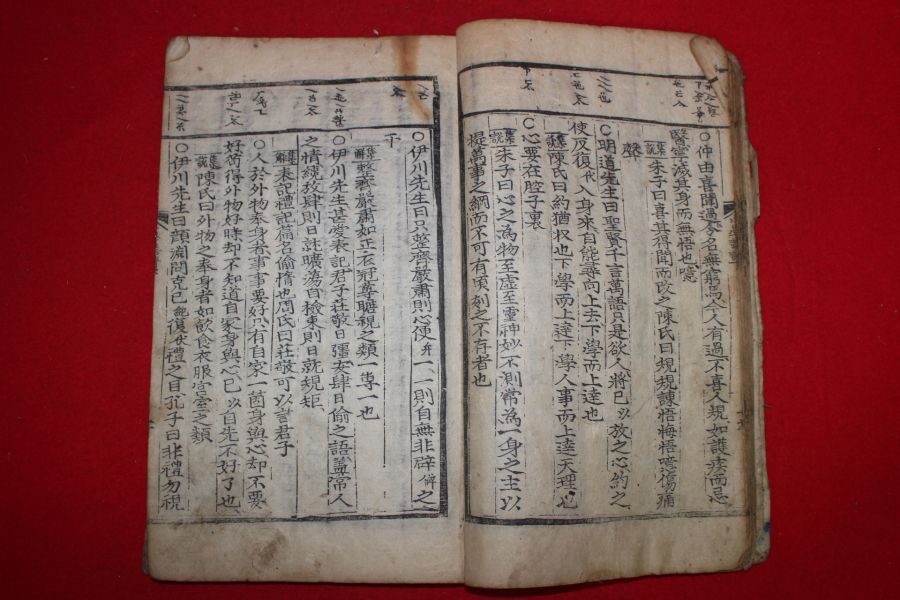 ○仲由喜聞過令名無窮焉今人有過不喜人規如護疾而忌
醫寧滅其身而無悟也噫
集說朱子曰喜其得聞而改之陳氏曰規規諫悟悔悟噫傷痛
聲
○明道先生曰聖賢千言萬語只是欲人將已以放之心約之
使反復代入身來自能尋向上去下學而上達也
集說陳氏曰約猶收也下學而上達下學人事而上達天理也
○心要在腔子裏
集說朱子曰心之為物至虛至靈神妙不測常為一身之主以
提萬事之綱而不可有頃刻之不存者也
○伊川先生曰只整齊嚴肅則心便一一則自無非辟之
干
集解整齊嚴肅如正衣冠尊瞻視之類一專一也
○伊川先生甚愛表記君子莊敬日彊安肆日偷之語盖常人
之情纔放肆則日就曠蕩自檢束則日就規矩
集解表記禮記篇名偷惰也周氏曰莊敬可以言君子
○人於外物奉身者事事要好只有自家一箇身與心却不要
好苟得外物好時却不知道自家身與心已以自先不好了也
集說陳氏曰外物之奉身者如飲食衣服宮室之類
○伊川先生曰顏淵問克己復禮之目孔子曰非禮勿視